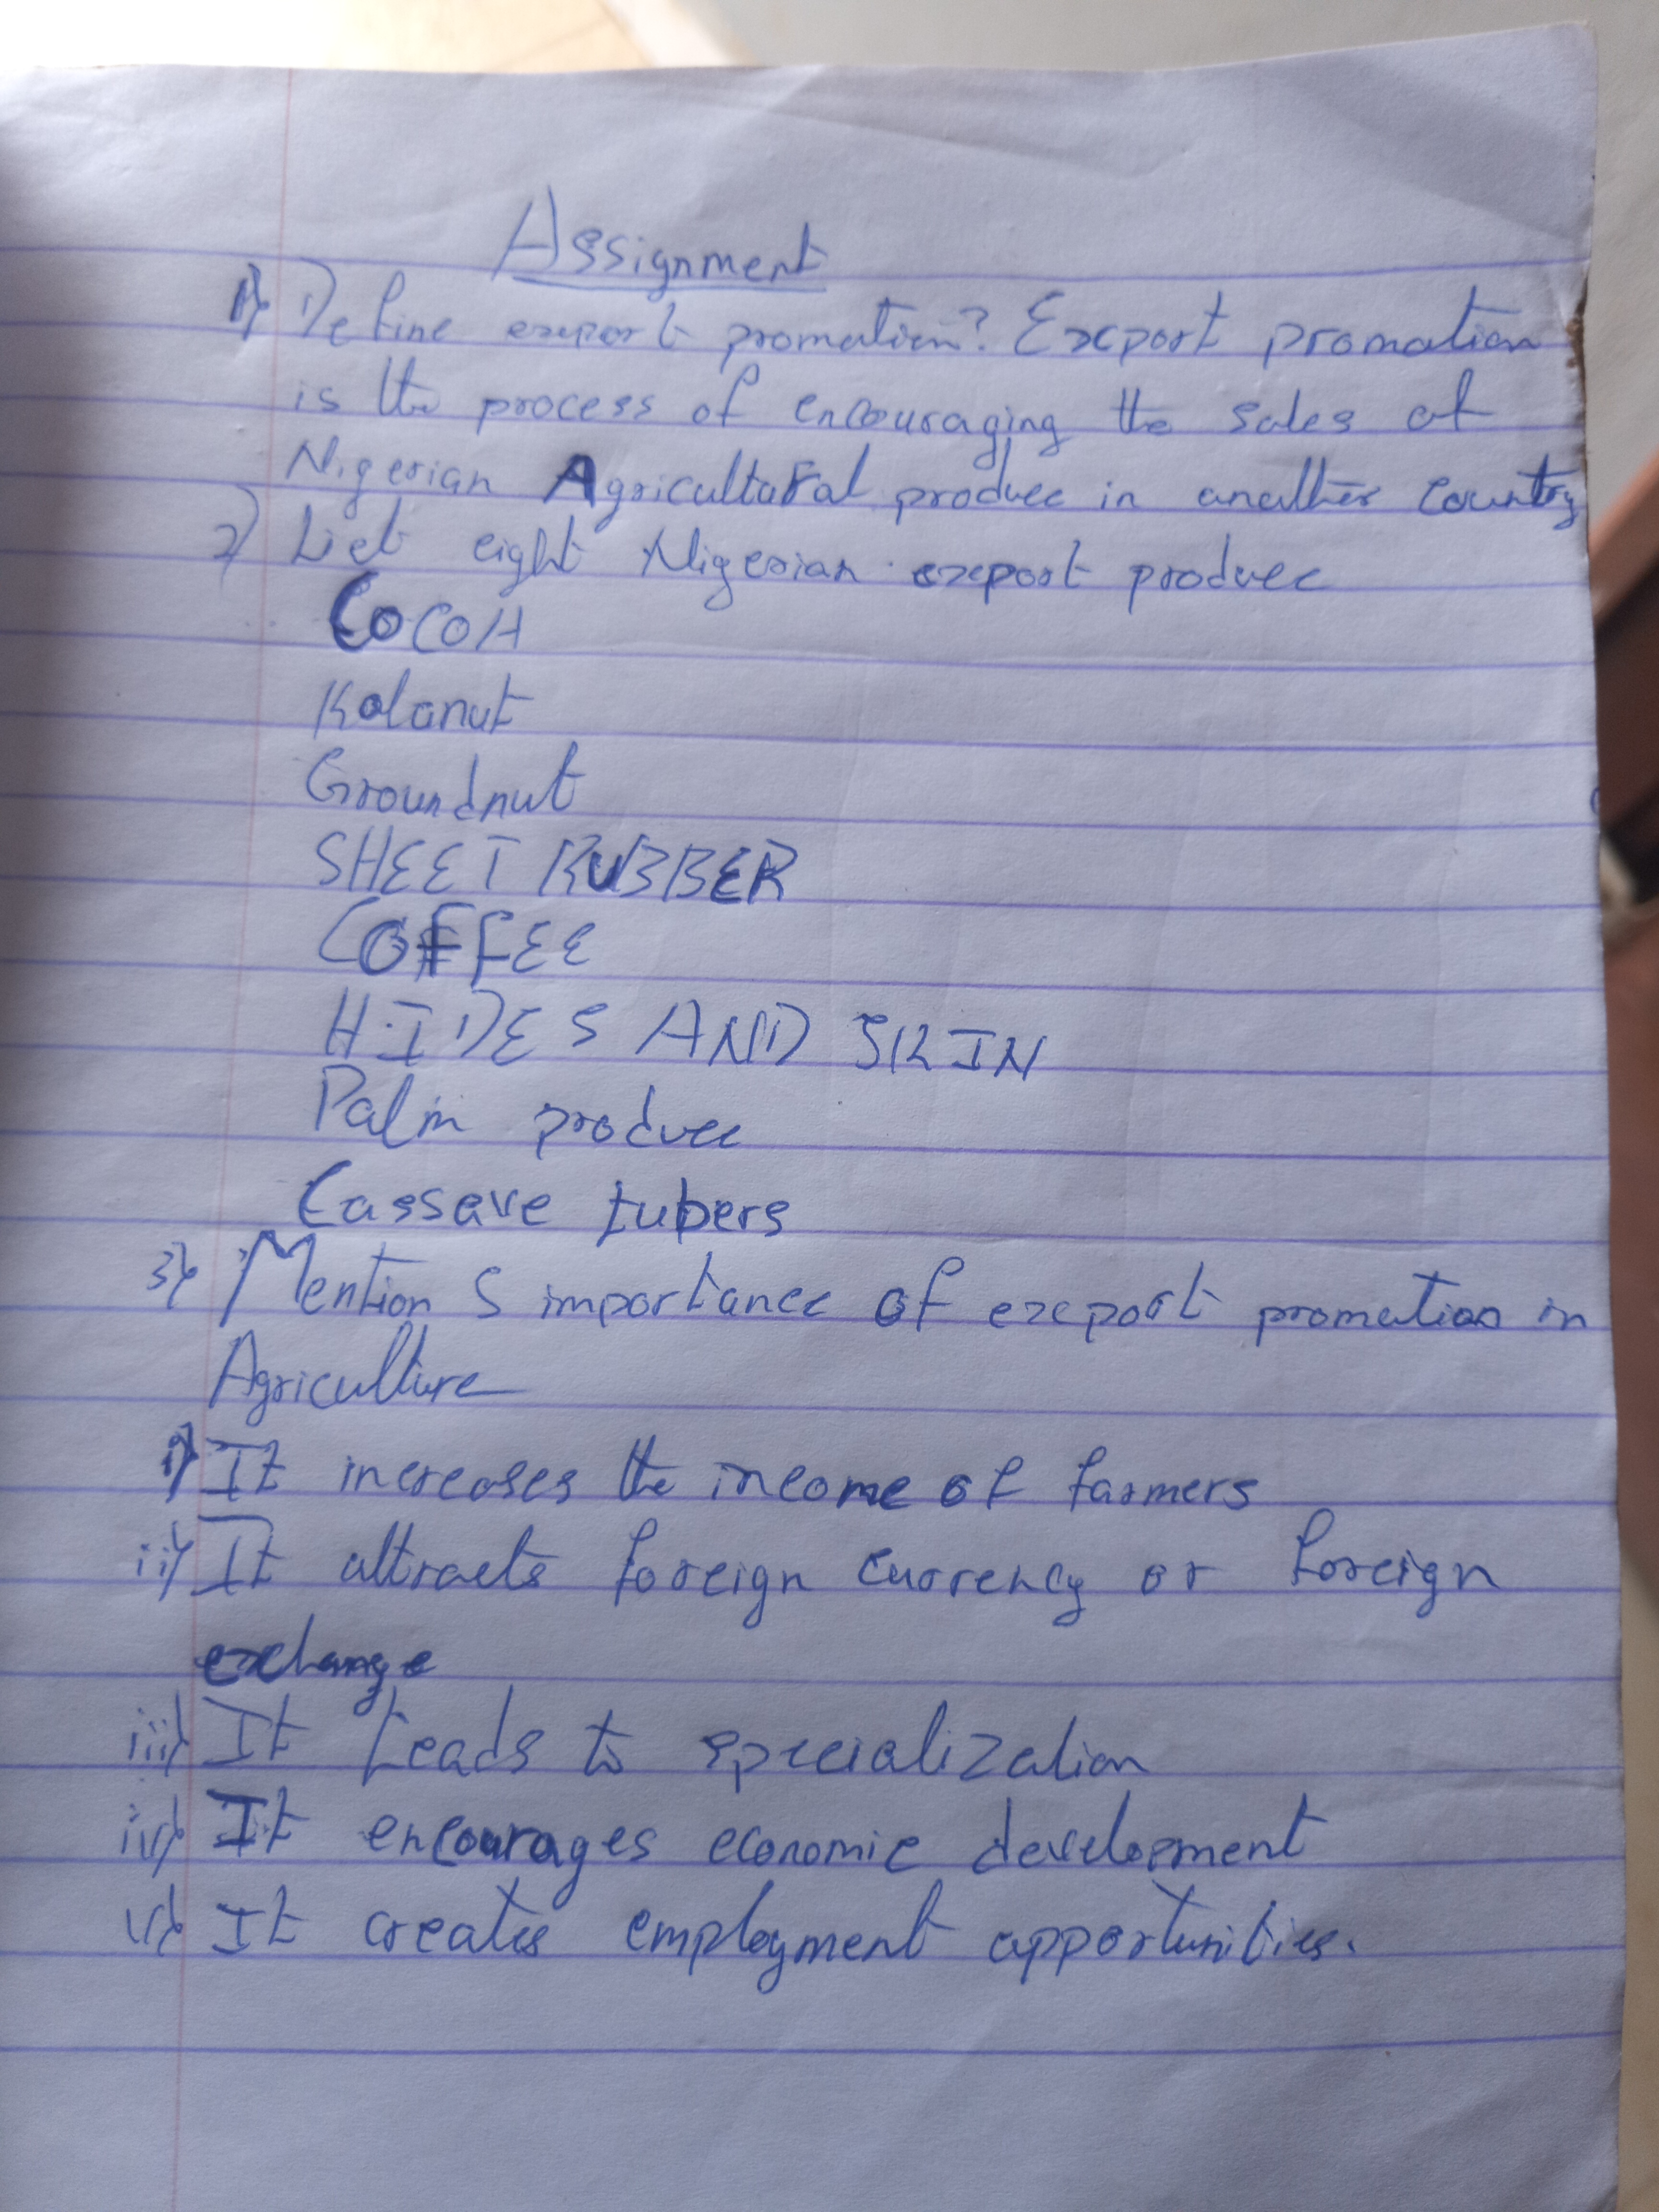 Assignment
1) Define export promotion? Export promotion
is the process of encouraging the sales of
Nigerian Agricultural produce in another country
2) List eight Nigerian export produce
COCOA
Kolanut
Groundnut
SHEET RUBBER
COFFEE
HIDES AND SKIN
Palm produce
Cassave tubers
3) Mention 5 importance of export promotion in
Agriculture
i) It increases the income of farmers
ii) It attracts foreign currency or foreign
exchange
iii) It Leads to specialization
iv) It encourages economic development
v) It creates employment opportunities.